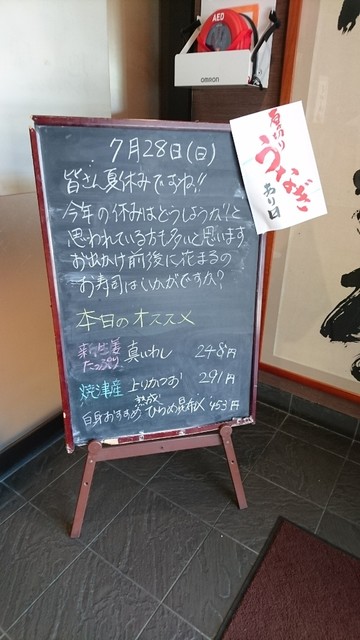 AED
OMRON
厚切り
うなぎ
あり〼
7月28日(日)
皆さん夏休みですね!!
今年の休みはどうしようかな?と
思われている方も多いと思います
お出かけ前後に花まるの
お寿司はいかがですか?
本日のオススメ
新生姜たっぷり 真いわし 248円
焼津産 上りかつお 291円
熟成
白身おすすめ ひらめ昆布〆 453円